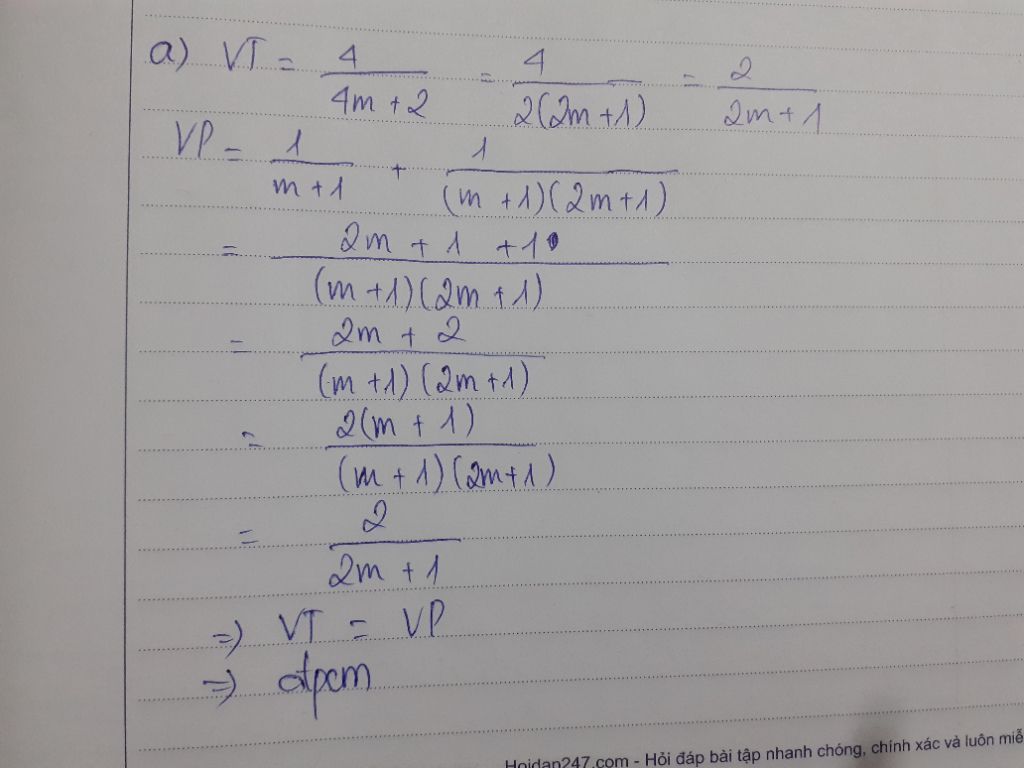 a) VT = 4/(4m + 2) = 4/(2(2m + 1)) = 2/(2m + 1)
VP = 1/(m + 1) + 1/((m + 1)(2m + 1))
= (2m + 1 + 1)/((m + 1)(2m + 1))
= (2m + 2)/((m + 1)(2m + 1))
= 2(m + 1)/((m + 1)(2m + 1))
= 2/(2m + 1)
=> VT = VP
=> đpcm
Hoidap247.com - Hỏi đáp bài tập nhanh chóng, chính xác và luôn miễ